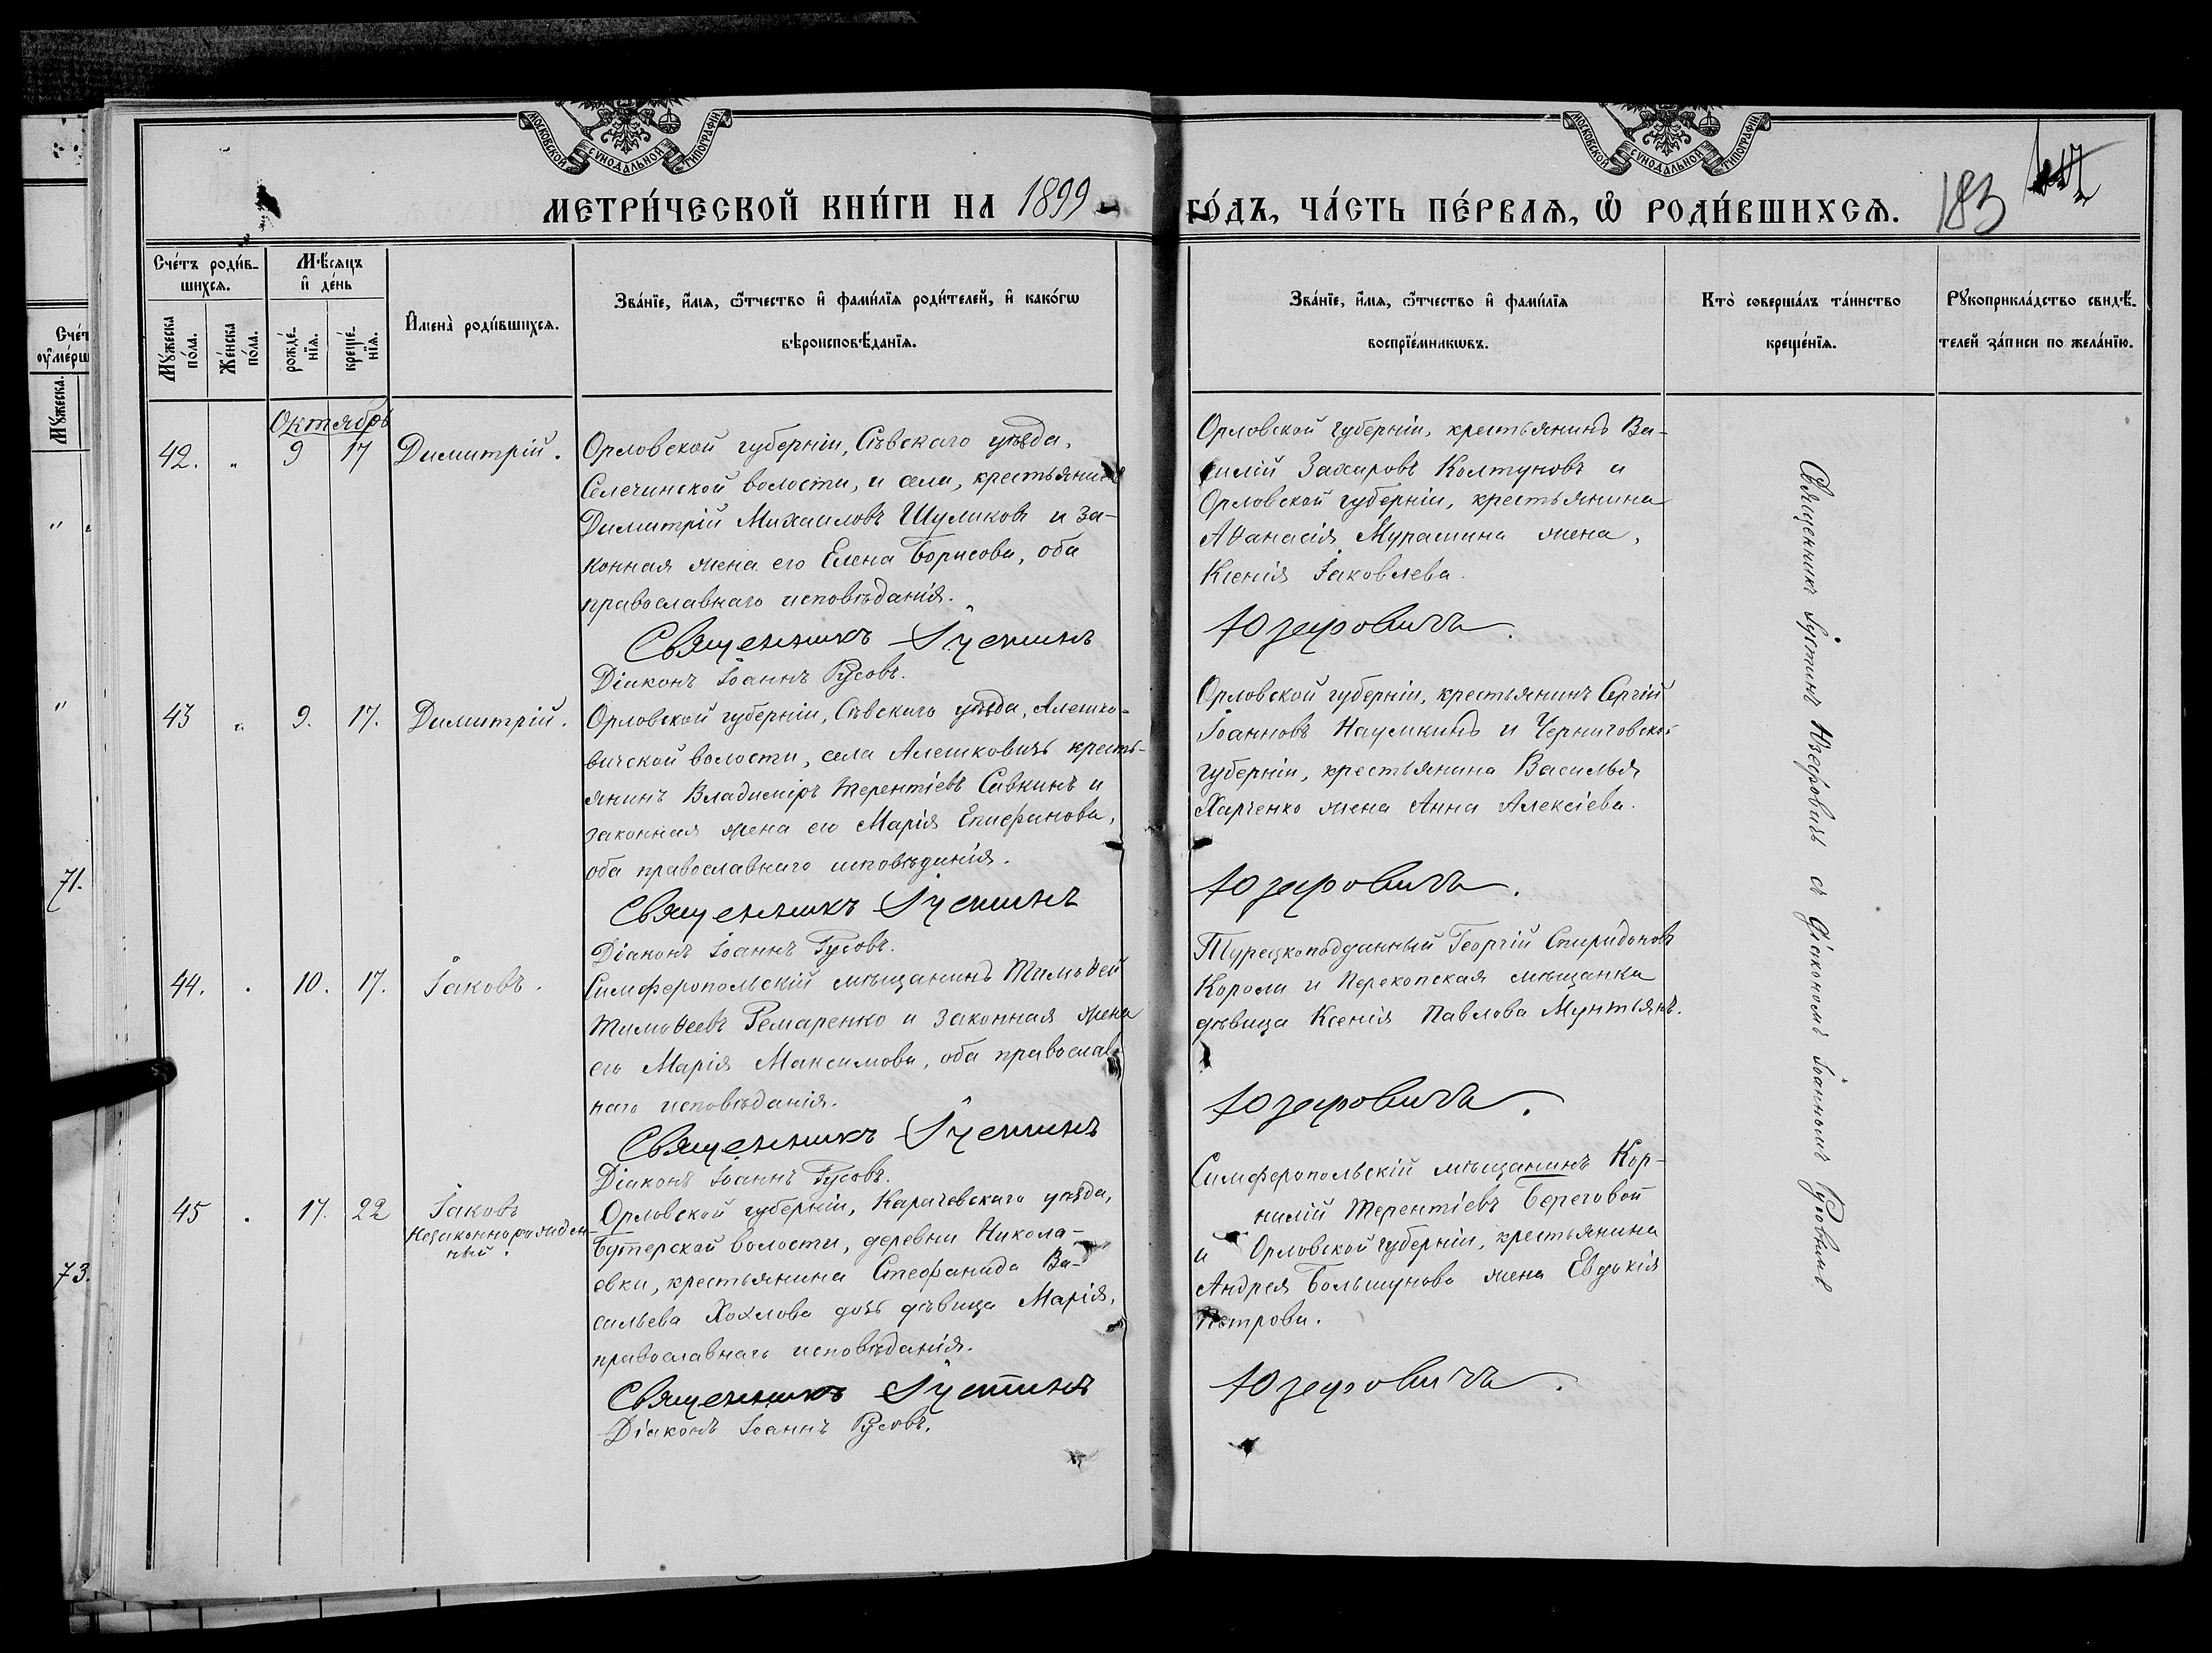 МОСКОВСКОЙ СѴНОДАЛЬНОЙ ТИПОГРАФІИ
МОСКОВСКОЙ СѴНОДАЛЬНОЙ ТИПОГРАФІИ
МЕТРИ́ЧЕСКОЙ КНИ́ГИ НА 1899 ГО́ДЪ, ЧА́СТЬ ПЕ́РВАѦ, Ѽ РОДИ́ВШИХСѦ.
183
Сче́тъ роди́в-
шихсѧ.
Мꙋ́жеска
по́ла.
Же́нска
по́ла.
Мѣ́сѧцъ
и҆ де́нь
рожде́-
нїѧ.
креще́-
нїѧ.
И҆мена̀ роди́вшихсѧ.
Зва́нїе, и҆́мѧ, ѻ҆́тчество и҆ фами́лїѧ роди́телей, и҆ како́гѡ
вѣроисповѣ́данїѧ.
Зва́нїе, и҆́мѧ, ѻ҆́тчество и҆ фами́лїѧ
воспрїе́мникѡвъ.
Кто̀ соверша́лъ та́инство
креще́нїѧ.
Рꙋкоприкла́дство свидѣ́-
телей за́писи по жела́нїю.
Октябрь
42. " 9 17 Димитрій.
Орловской губерніи, Сѣвскаго уѣзда,
Селечинской волости, и села, крестьянинъ
Димитрій Михаиловъ Шуликовъ и за-
конная жена его Елена Борисова, оба
православнаго исповѣданія.
Священникъ Іустинъ
Діаконъ Іоаннъ Русовъ.
Орловской губерніи, крестьянинъ Ва-
силій Захаровъ Колтуновъ и
Орловской губерніи, крестьянина
Аѳанасія Мурашина жена,
Ксенія Іаковлева.
Юзефовичъ.
43 " 9. 17. Димитрій.
Орловской губерніи, Сѣвскаго уѣзда, Алешко-
вичской волости, села Алешковичъ кресть-
янинъ Владиміръ Терентіевъ Савкинъ и
законная жена его Марія Епифанова,
оба православнаго исповѣданія.
Священникъ Іустинъ
Діаконъ Іоаннъ Русовъ.
Орловской губерніи, крестьянинъ Сергій
Іоанновъ Наумкинъ и Черниговской
губерніи, крестьянина Василья
Харченко жена Анна Алексіева.
Юзефовичъ.
44. . 10. 17. Іаковъ.
Симферопольскій мѣщанинъ Тимоѳей
Тимоѳеевъ Ремаренко и законная жена
его Марія Максимова, оба православ-
наго исповѣданія.
Священникъ Іустинъ
Діаконъ Іоаннъ Русовъ.
Турецкоподданный Георгій Спиридоновъ
Короли и Перекопская мѣщанка
дѣвица Ксенія Павлова Мунтьянъ.
Юзефовичъ.
45 . 17. 22 Іаковъ
незаконнорожден-
ный.
Орловской губерніи, Карачевскаго уѣзда,
Бутерской волости, деревни Никола-
евки, крестьянина Стефанида Ва-
сильева Хохлова дочь дѣвица Марія,
православнаго исповѣданія.
Священникъ Іустинъ
Діаконъ Іоаннъ Русовъ.
Симферопольскій мѣщанинъ Кор-
нилій Терентіевъ Береговой
и Орловской губерніи, крестьянина
Андрея Большунова жена Евдокія
Петрова.
Юзефовичъ.
Священникъ Іустинъ Юзефовичъ съ діакономъ Іоанномъ Русовымъ
Сче́т
оу҆ме́рш
Мꙋ́жеска.
"
"
71.
73.